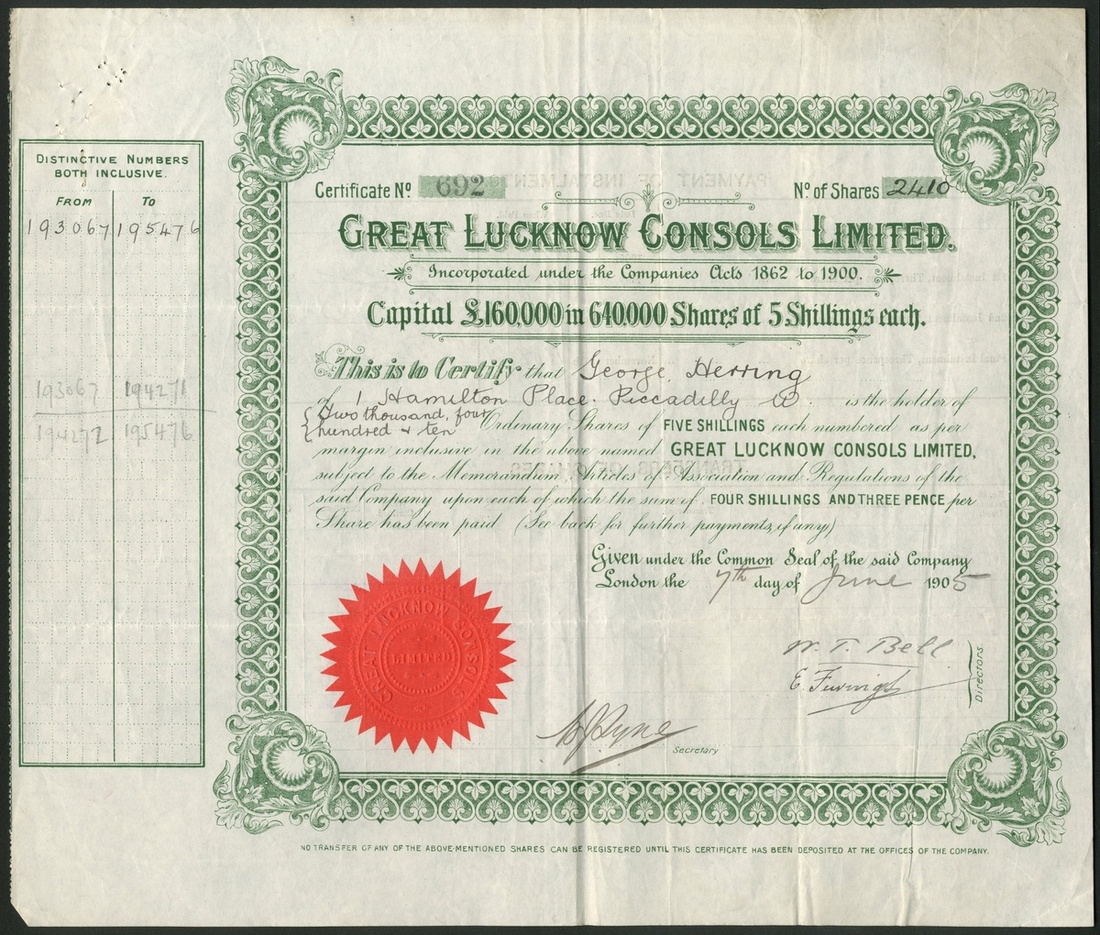 DISTINCTIVE NUMBERS
BOTH INCLUSIVE.
FROM TO
193067 195476
193067 194271
194272 195476
Certificate No. 692 No. of Shares 2410
GREAT LUCKNOW CONSOLS LIMITED.
Incorporated under the Companies Acts 1862 to 1900.
Capital £160,000 in 640,000 Shares of 5 Shillings each.
This is to Certify that George Herring
of 1 Hamilton Place. Piccadilly W. is the holder of
Two thousand, four
hundred & ten Ordinary Shares of FIVE SHILLINGS each numbered as per
margin inclusive in the above named GREAT LUCKNOW CONSOLS LIMITED,
subject to the Memorandum, Articles of Association and Regulations of the
said Company upon each of which the sum of FOUR SHILLINGS AND THREE PENCE per
Share has been paid (See back for further payments, if any)
Given under the Common Seal of the said Company
London the 7th day of June 1905
GREAT LUCKNOW CONSOLS
LIMITED
W. T. Bell
Directors.
Secretary
NO TRANSFER OF ANY OF THE ABOVE-MENTIONED SHARES CAN BE REGISTERED UNTIL THIS CERTIFICATE HAS BEEN DEPOSITED AT THE OFFICES OF THE COMPANY.